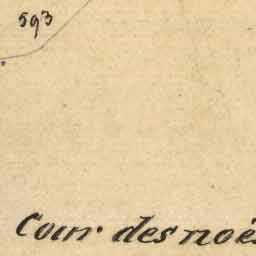 593
Cour des noë